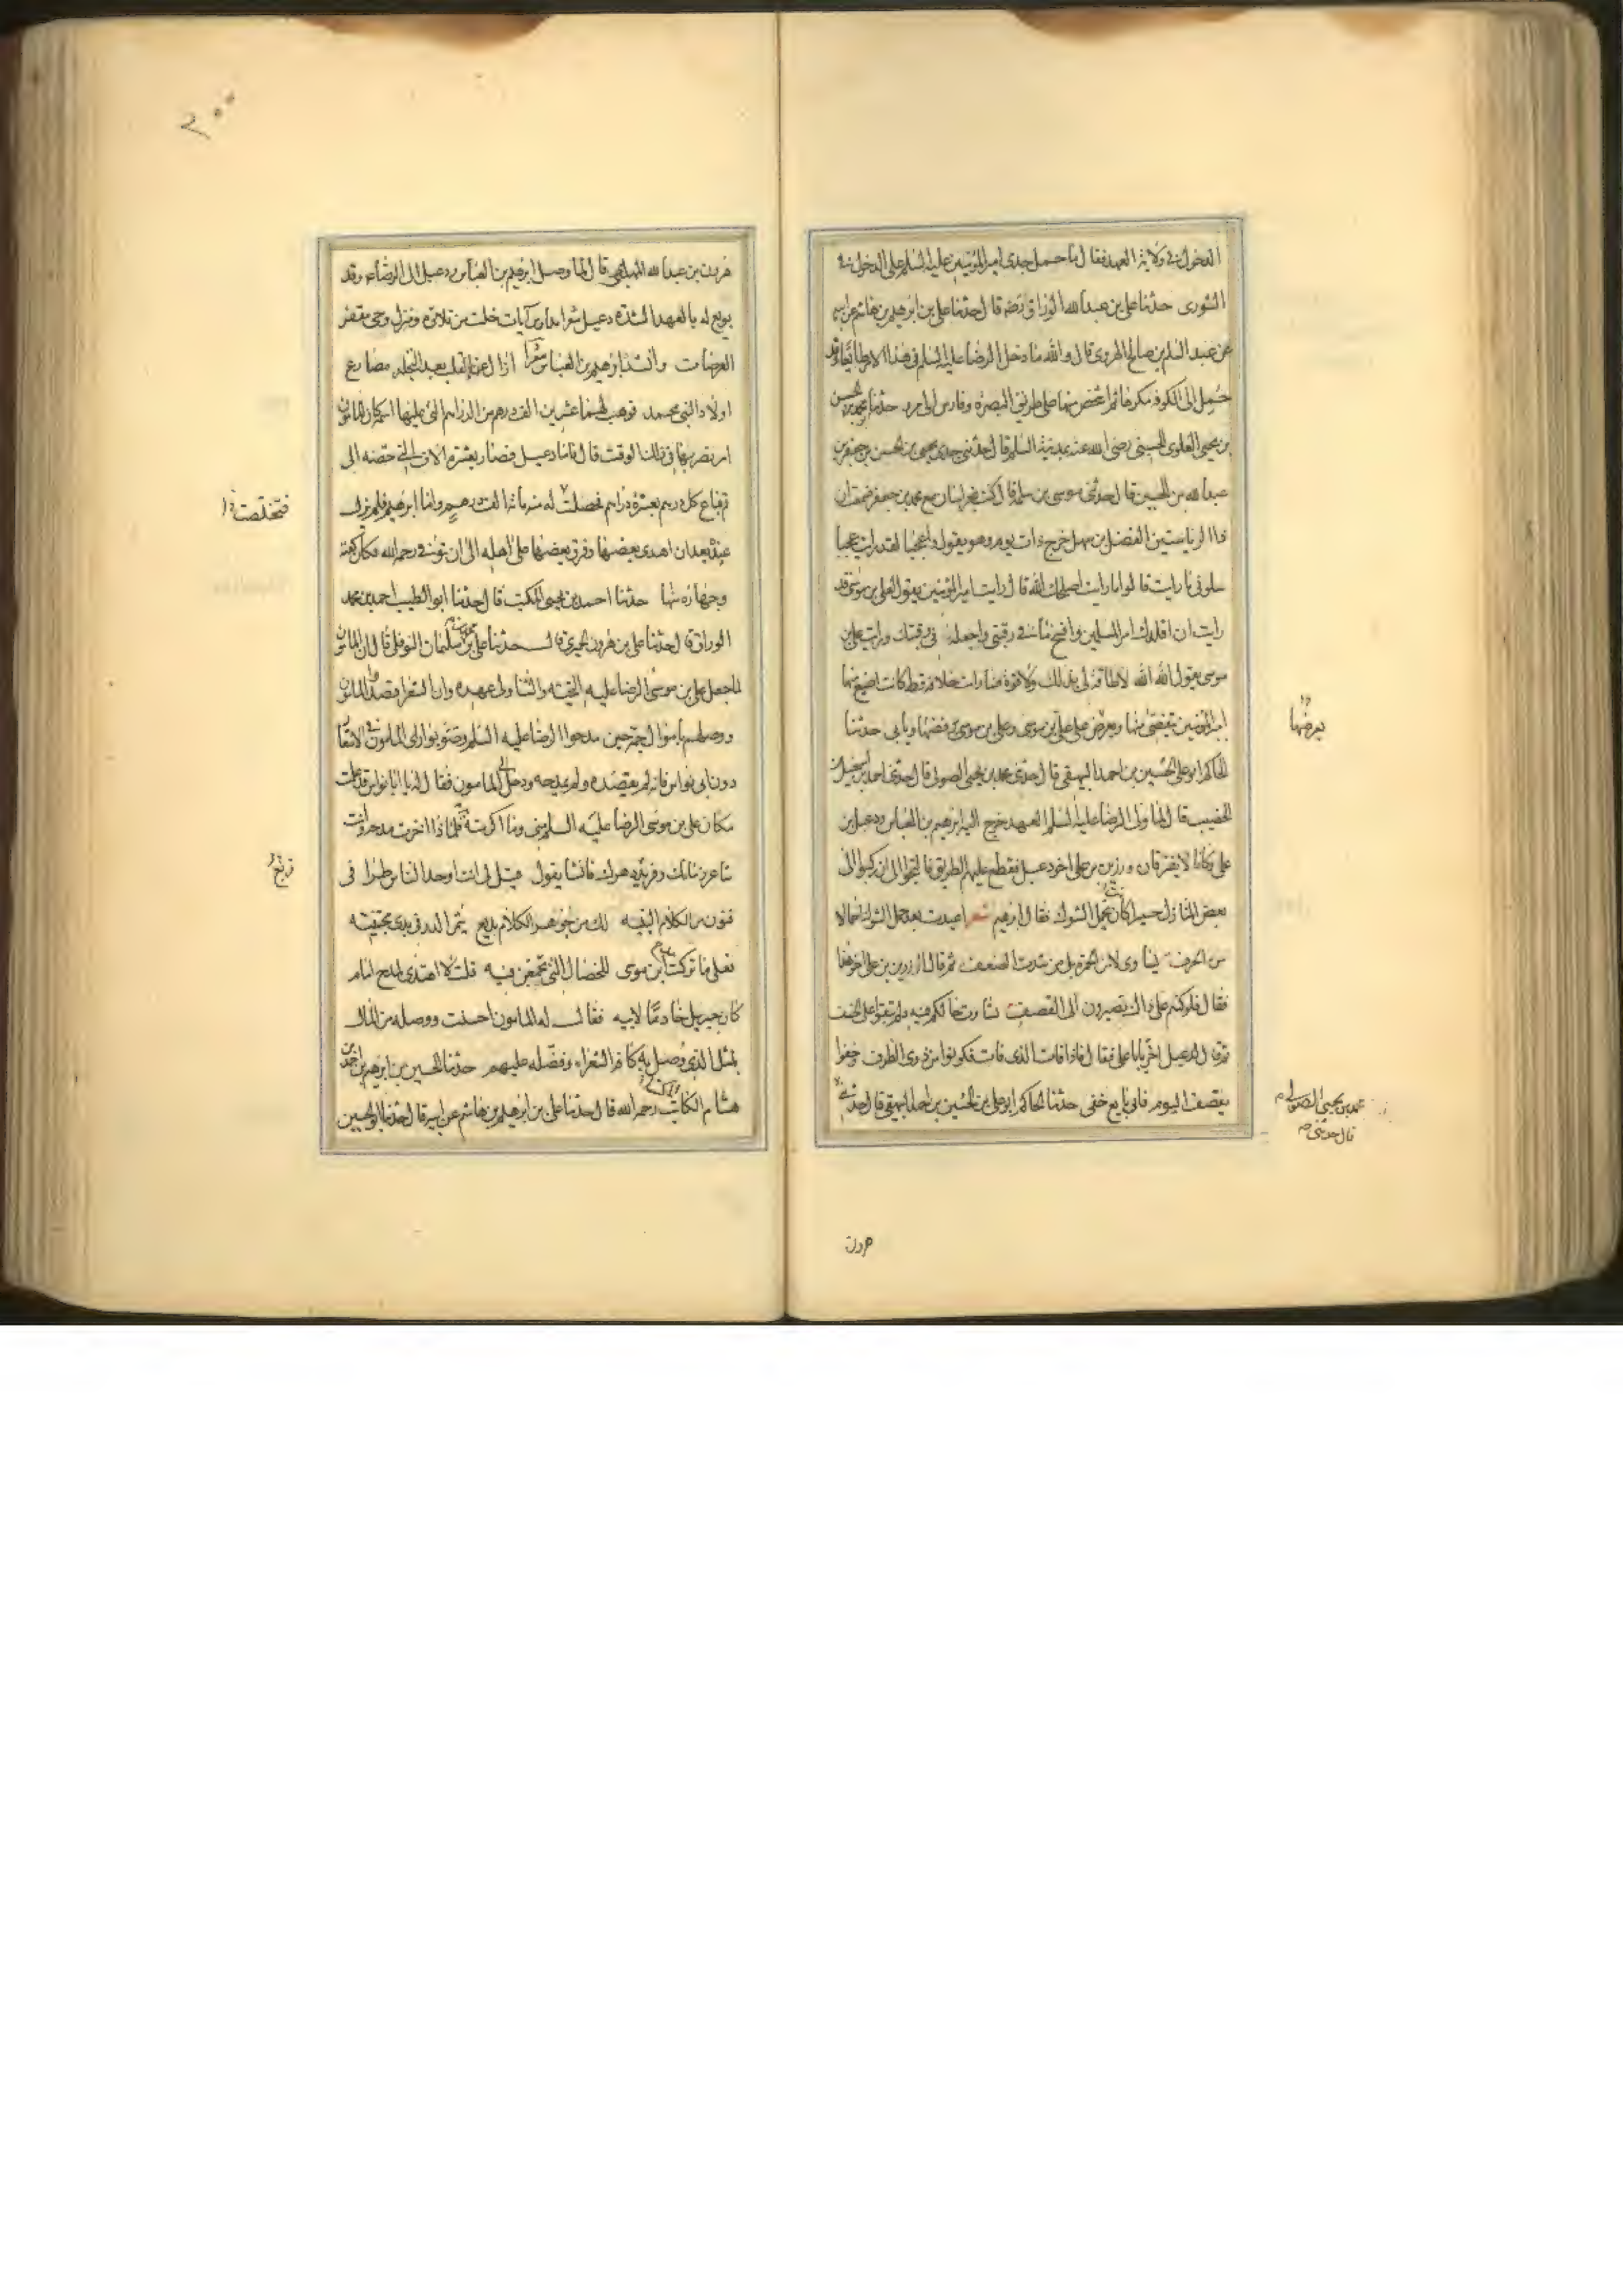 الدخول في ولاية العهد فقال ما حمل جدى امير المؤمنين عليه السلم على الدخول في
الشورى حدثنا على بن عبد الله الوراق رضه قال حدثنا على بن ابرهيم بن هاشم عن ابيه
عن عبد السلم بن صالح الهروى قال والله ما دخل الرضا عليه السلم في هذا الامر طائعا وقد
حمل الى الكوفة مكرها ثم اشخص منها على طريق البصرة وفارس الى مرو حدثنا محمد بن الحسن
بن يحيى العلوى الحسينى رضى الله عنه بمدينة السلم قال حدثنى جدى يحيى بن الحسن بن جعفر بن
عبد الله بن الحسين قال حدثنى موسى بن سلمة قال كنت بخراسان مع محمد بن جعفر فسمعت ان
ذا الرياستين الفضل بن سهل خرج ذات يوم وهو يقول واعجبا لقد رايت عجبا
سلونى ما رايت قالوا ما رايت اصلحك الله قال رايت امير المؤمنين يقول لعلى بن موسى قد
رايت ان اقلدك امر المسلمين وافسخ ما في رقبتى واجعله في رقبتك ورايت على بن
موسى يقول الله الله لا طاقة لى بذلك ولا قوة فما رايت خلافة قط كانت اضيع منها
امير المؤمنين يتفصى منها ويعرض على على بن موسى وعلى بن موسى يرفضها ويابى حدثنا
يعرضها
الحاكم ابو على الحسين بن احمد البيهقى قال حدثنى محمد بن يحيى الصولى قال حدثنى احمد بن اسمعيل بن
الخصيب قال لما ولى الرضا عليه السلم العهد خرج اليه ابرهيم بن العباس ودعبل بن
على وكانا لا يفترقان ورزين بن على اخو دعبل فقطع عليهم الطريق فالتجوا الى ان ركبوا الى
بعض المنازل حميرا كانت تحمل الشوك فقال ابرهيم شعر اعيدت بعد حمل الشوك احمالا
من الخرف نشاوى لا من الخمرة بل من شدت الضعف ثم قال لرزين بن على اجزها
فقال فلو كنتم على ذاك تصيرون الى القصف تساوت حالكم فيه ولم تبقوا على الخسف
ثم قال لدعبل اجز يا ابا على فقال فاذا فات الذى فات فكونوا من ذوى الظرف وخفوا
نقصف اليوم فانى بايع خفى حدثنا الحاكم ابو على بن الحسين بن احمد البيهقى قال حدثنى
محمد بن يحيى الصولى
قال حدثنى
هرون
٢٠٠
هرون بن عبد الله المهلبى قال لما وصل ابرهيم بن العباس ودعبل الى الرضا ع وقد
بويع له بالعهد انشده دعبل شعرا مدارس آيات خلت من تلاوة ومنزل وحى مقفر
العرصات وانشد ابرهيم بن العباس شعرا ازال عزاء القلب بعد التجلد مصارع
اولاد النبى محمد فوهب لهما عشرين الف درهم من الدراهم التى عليها اسمه كان المامون
امر بضربها في ذلك الوقت قال فاما دعبل فصار بعشرة الاف التى حصته الى
قم فباع كل درهم بعشرة دراهم فحصلت له منه مائة الف درهم واما ابرهيم فلم تزل
فتخلصت
عنده بعد ان اهدى بعضها وفرق بعضها على اهله الى ان توفى رحمه الله فكان كفنه
وجهازه منها حدثنا احمد بن يحيى المكتب قال حدثنا ابو الطيب احمد بن محمد
الوراق قال حدثنا على بن هرون الحميرى قال حدثنا على بن محمد بن سليمان النوفلى قال ان المامون
لما جعل على بن موسى الرضا عليه التحية والثنا ولى عهده وان الشعرا قصدوا المامون
ووصلهم باموال جمة حين مدحوا الرضا عليه السلم وصوبوا راى المامون في الاشعار
دون ابى نواس فانه لم يقصده ولم يمدحه ودخل الى المامون فقال له يا ابا نواس قد علمت
مكان على بن موسى الرضا عليه السلم منى وما اكرمته به فلماذا اخرت مدحه وانت
شاعر زمانك وفريد دهرك فانشا يقول قيل لى انت اوحد الناس طرا في
فنون من الكلام النبيه لك من جوهر الكلام بديع يثمر الدر في يدى مجتنيه
فعلى ما تركت مدح ابن موسى للخصال التى تجمعن فيه قلت لا اهتدى لمدح امام
كان جبريل خادما لابيه فقال له المامون احسنت ووصله من المال
بمثل الذى وصل به كافة الشعراء وفضله عليهم حدثنا الحسين بن ابرهيم بن احمد بن
هشام الكاتب رحمه الله قال حدثنا على بن ابرهيم بن هاشم عن ابيه قال حدثنا ابو الحسين